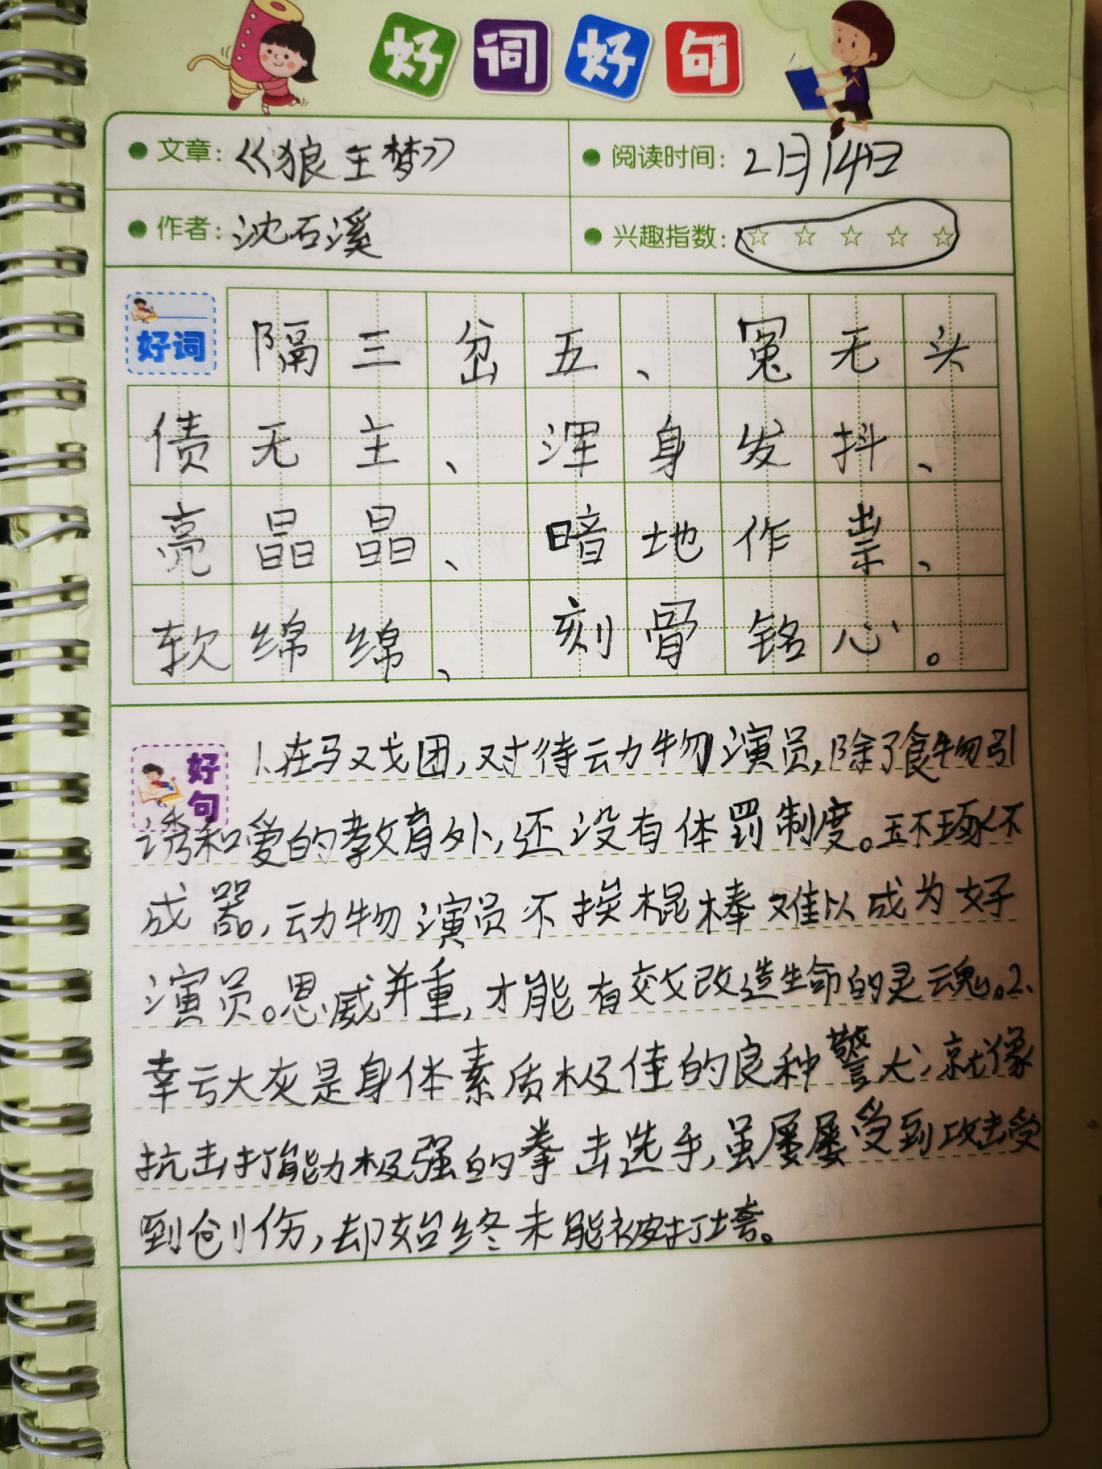 好词好句
文章：《狼王梦》
阅读时间：2月14日
作者：沈石溪
兴趣指数：☆ ☆ ☆ ☆ ☆
好词
隔三岔五、冤无头
债无主、浑身发抖、
亮晶晶、暗地作祟、
软绵绵、刻骨铭心。
好句
1.在马戏团，对待动物演员，除了食物引
诱和爱的教育外，还没有体罚制度。玉不琢不
成器，动物演员不挨棍棒难以成为好
演员。恩威并重，才能有效改造生命的灵魂。2、
幸亏大灰是身体素质极佳的良种警犬，就像
抗击打能力极强的拳击选手，虽屡屡受到攻击受
到创伤，却始终未能被打垮。